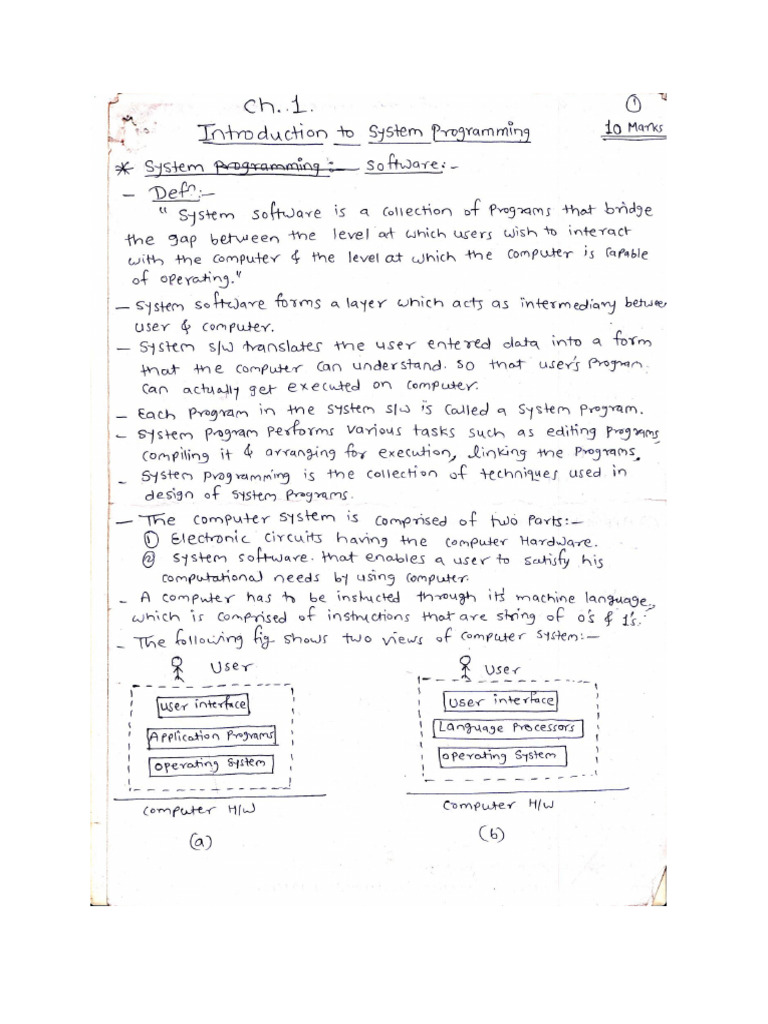 Ch. 1.
①
Introduction to System Programming
10 Marks
* System Programming :- Software:-
- Defn:-
" System software is a collection of Programs that bridge
the gap between the level at which users wish to interact
with the computer & the level at which the computer is capable
of operating."
- System software forms a layer which acts as intermediary between
user & computer.
- System s/w translates the user entered data into a form
that the computer can understand. so that user's Program
can actually get executed on computer.
- Each Program in the system s/w is called a system program.
- System program performs various tasks such as editing programs,
compiling it & arranging for execution, linking the Programs,
- System Programming is the collection of techniques used in
design of system Programs.
- The computer system is comprised of two Parts:-
① Electronic circuits having the computer Hardware.
② System software. that enables a user to satisfy his
computational needs by using computer.
- A computer has to be instructed through its machine language,
which is comprised of instructions that are string of 0's & 1's.
- The following fig. shows two views of computer system:-
User
user interface
Application Programs
operating system
computer H/W
(a)
User
User interface
Language Processors
operating system
computer H/W
(b)